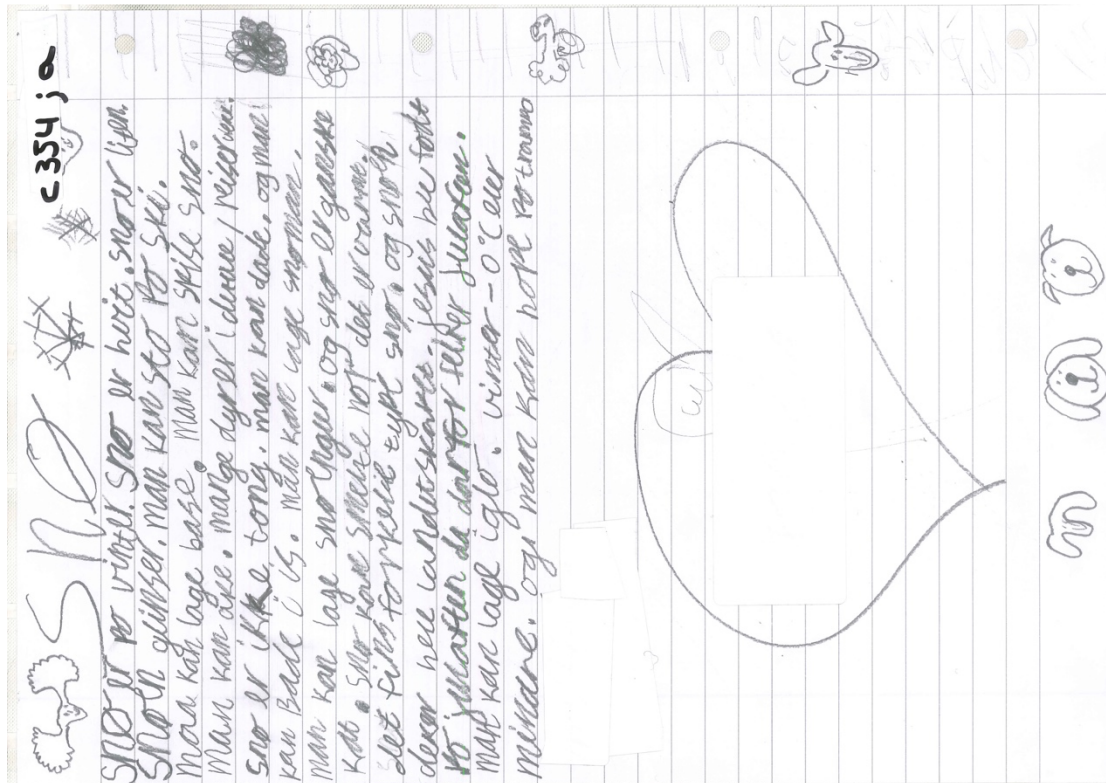 c354 ja
SNØ
snø er po vinter. snø er hvit. snø er liten.
snøln glinser. man kan sto po ski.
man kan lage base. man kan spise snø.
man kan ake. mange dyrer i denne / reiser
snø er ikke tong. man kan dade. og man
kan Bade i is. man kan lage snømann.
man kan lage snø lnger. og snø er ganske
kalt. snø kan smelte nor det er varme.
det fins forskelie type snø. og snøln
deker hele landetskapet. jesus ble født
po julaften da darfor selher julaften.
man kan lage iglo. vinter - 0°C eler
mindre. og man kan hope po tramo